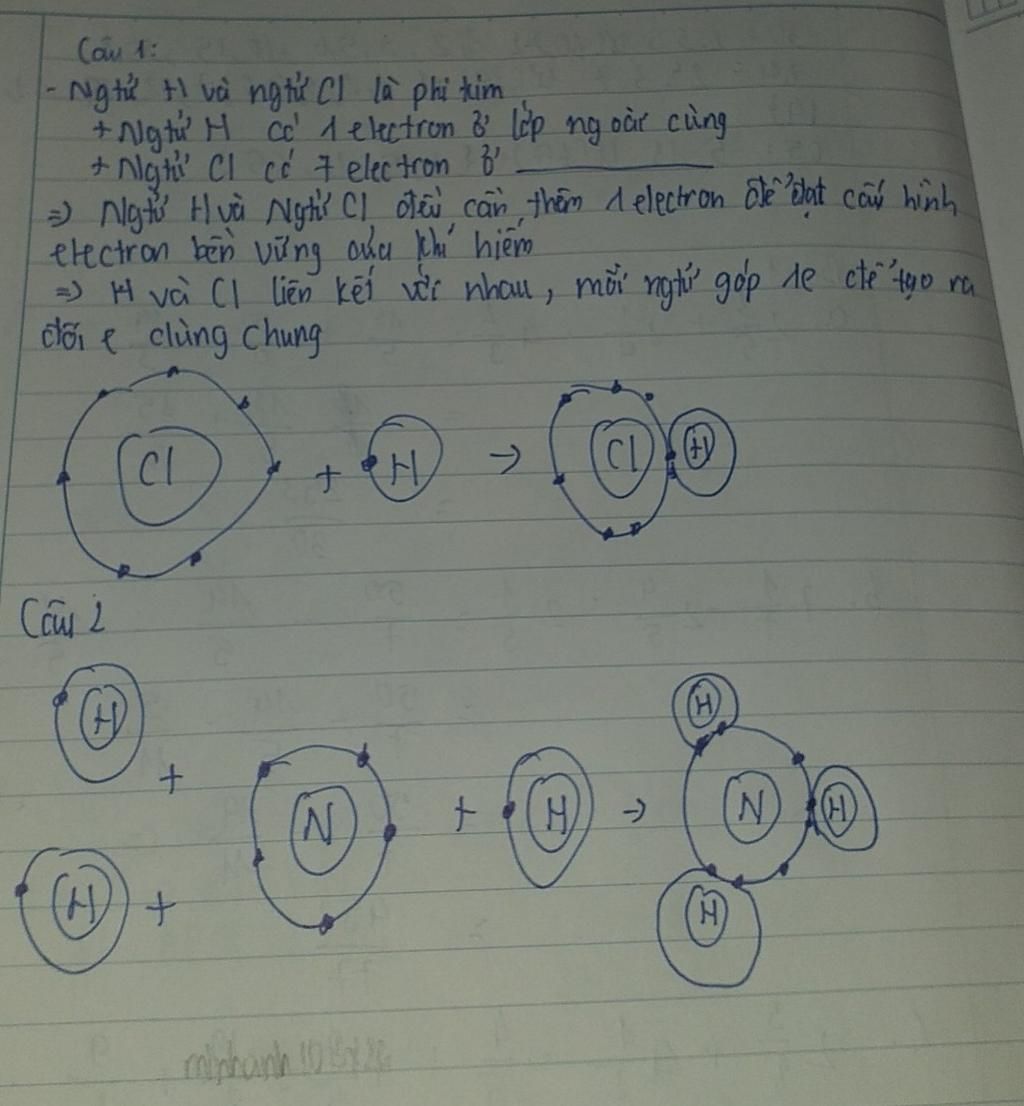 Câu 1:
- Ngtử H và ngtử Cl là phi kim
+ Ngtử H có 1 electron ở lớp ngoài cùng
+ Ngtử Cl có 7 electron ở
=> Ngtử H và Ngtử Cl đều cần thêm 1 electron để đạt cấu hình
electron bền vững của khí hiếm
=> H và Cl liên kết với nhau, mỗi ngtử góp 1e để tạo ra
đôi e dùng chung
Cl + H → Cl H
Câu 2
H
H
+
N + H → N H
H +
H